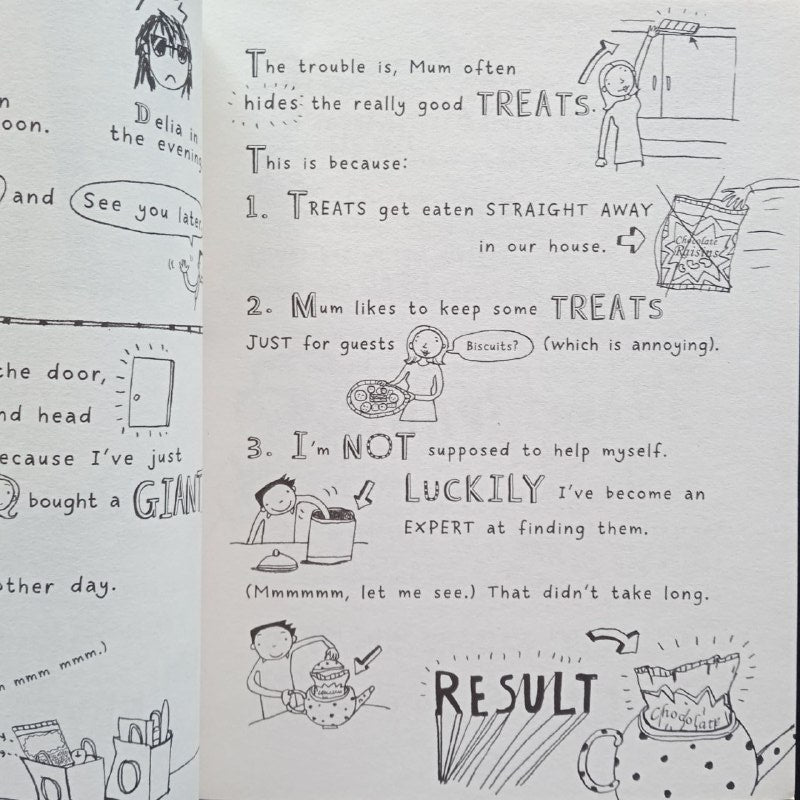 Delia in
the evening
oon.
and
See you late
the door,
nd head
ecause I've just
bought a GIANT
other day.
mm mmm.)
The trouble is, Mum often
hides the really good TREATS.
This is because:
1. TREATS get eaten STRAIGHT AWAY
in our house.
Chocolate
Raisins
2. Mum likes to keep some TREATS
JUST for guests Biscuits? (which is annoying).
3. I'm NOT supposed to help myself.
LUCKILY I've become an
EXPERT at finding them.
(Mmmmmm, let me see.) That didn't take long.
RESULT
Chocolate